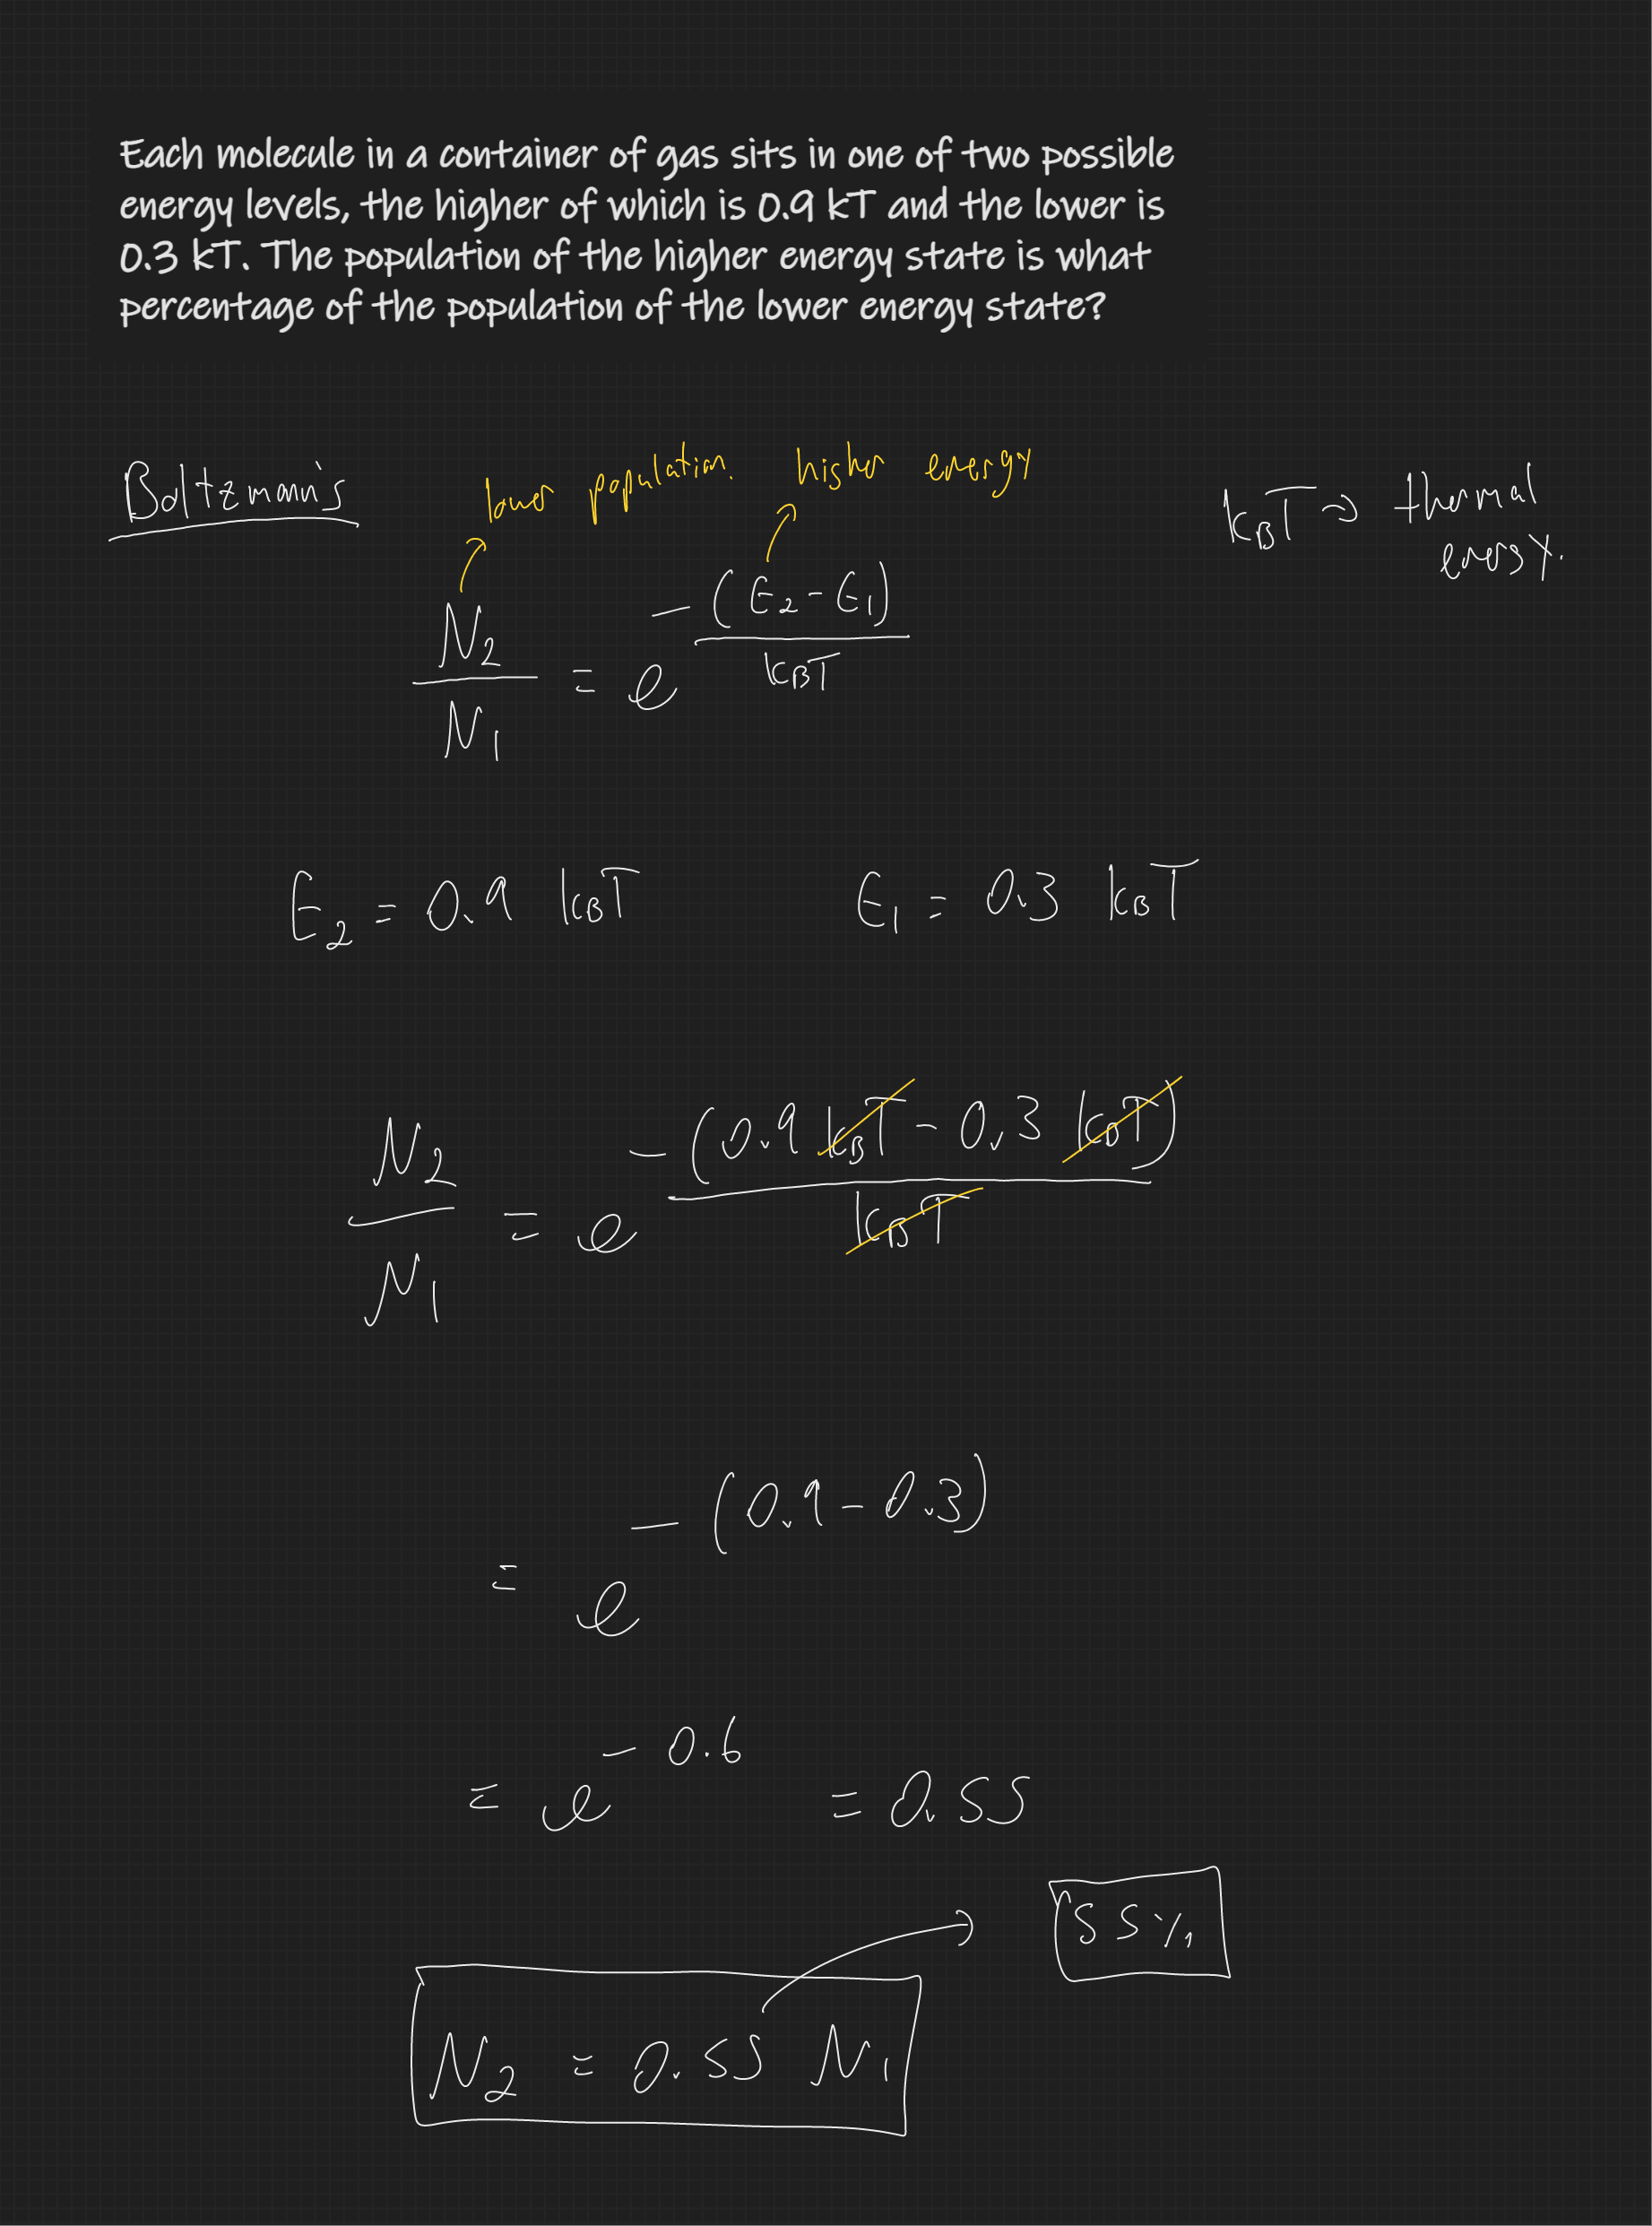 Each molecule in a container of gas sits in one of two possible
energy levels, the higher of which is 0.9 kT and the lower is
0.3 kT. The population of the higher energy state is what
percentage of the population of the lower energy state?
Boltzmann's
lower population.
higher energy
k_BT → thermal
energy.
N_2/N_1 = e^{-(E_2-E_1)/k_BT}
E_2 = 0.9 k_BT
E_1 = 0.3 k_BT
N_2/N_1 = e^{-(0.9 k_BT - 0.3 k_BT)/k_BT}
= e^{-(0.9-0.3)}
= e^{-0.6} = 0.55
55%
N_2 = 0.55 N_1